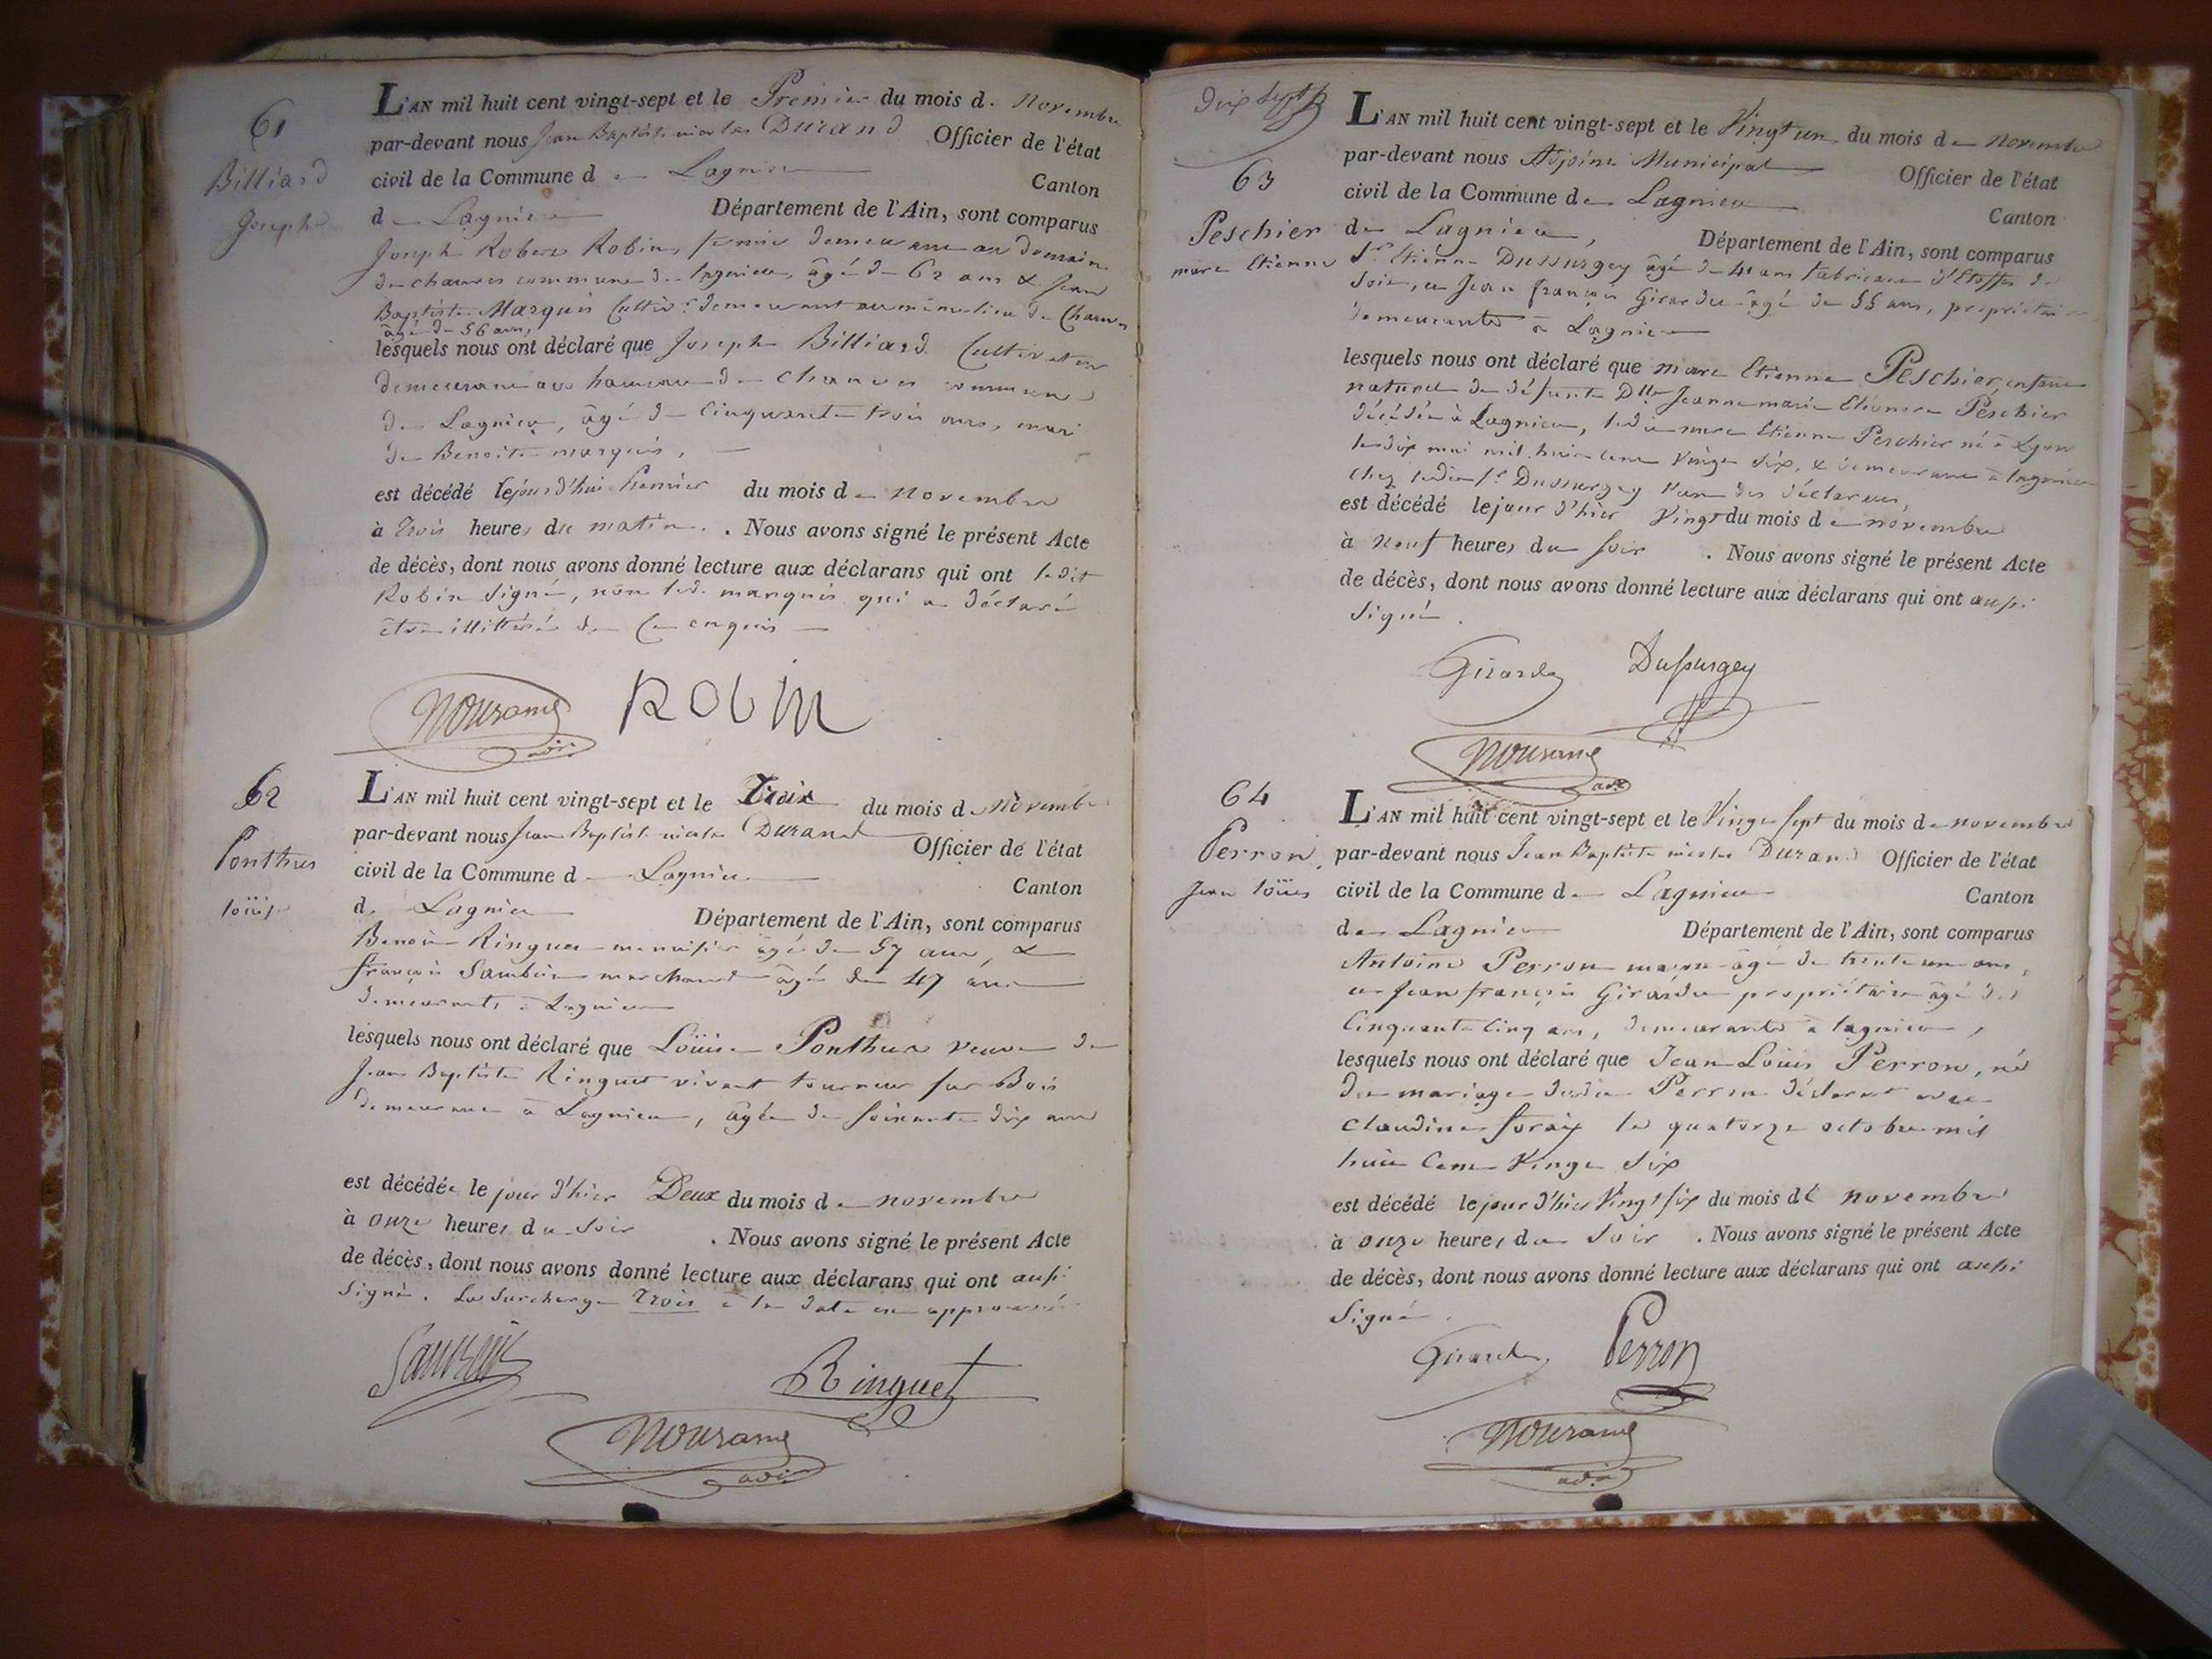 61
Billiard
Joseph
L'AN mil huit cent vingt-sept et le Premier du mois de Novembre
par-devant nous Jean Baptiste nicolas Durand Officier de l'état
civil de la Commune de Lagnieu Canton
de Lagnieu Département de l'Ain, sont comparus
Joseph Robin, fermier demeurant au domaine
de chauves commune de Lagnieu, âgé de 62 ans & Jean
Baptiste Marquis Cultivr demeurant au même lieu de Chauves
âgé de 56 ans,
lesquels nous ont déclaré que Joseph Billiard Cultivateur
demeurant au hameau de Chauves commune
de Lagnieu, âgé de Cinquante trois ans, mari
de Benoite marquis,
est décédé le jourd'hui Premier du mois de novembre
à Trois heures du matin. Nous avons signé le présent Acte
de décès, dont nous avons donné lecture aux déclarans qui ont ledit
Robin Signé, non led. marquis qui a déclaré
être illittéré de Ce enquis
Robin
62
Ponthus
Loüise
L'AN mil huit cent vingt-sept et le Trois du mois de Novembre
par-devant nous Jean Baptiste nicolas Durand Officier de l'état
civil de la Commune de Lagnieu Canton
de Lagnieu Département de l'Ain, sont comparus
Benoit Ringuet menuisier âgé de 57 ans, &
françois marchand âgé de 47 ans
demeurants à Lagnieu
lesquels nous ont déclaré que Loüise Ponthus veuve de
Jean Baptiste Ringuet vivant tourneur sur Bois
demeurant à Lagnieu, âgée de Soixante dix ans
est décédée le jour d'hier Deux du mois de novembre
à onze heures du Soir. Nous avons signé le présent Acte
de décès, dont nous avons donné lecture aux déclarans qui ont aussi
Signé. La Surcharge Trois à la date est approuvée
Ringuet
Dix sept
63
Peschier
marc Etienne
L'AN mil huit cent vingt-sept et le Vingt un du mois de Novembre
par-devant nous Adjoint Municipal Officier de l'état
civil de la Commune de Lagnieu Canton
de Lagnieu, Département de l'Ain, sont comparus
Sr Etienne Dussurgey âgé de 41 ans fabricant d'Etoffes de
Soie, et Jean françois Girardu âgé de 55 ans, propriétaire
demeurants à Lagnieu
lesquels nous ont déclaré que marc Etienne Peschier, enfant
naturel de défunte Dlle Jeanne marie Eléonore Péschier
décédée à Lagnieu, ledit marc Etienne Peschier né à Lyon
le dix mai mil huit cent Vingt Six, & demeurant à Lagnieu
chez ledit Sr Dussurgey l'un des déclarans,
est décédé le jour d'hier Vingt du mois de novembre
à neuf heures du Soir. Nous avons signé le présent Acte
de décès, dont nous avons donné lecture aux déclarans qui ont aussi
Signé.
Girardu Dussurgey
64
Perron
Jean Loüis
L'AN mil huit cent vingt-sept et le Vingt Sept du mois de novembre
par-devant nous Jean Baptiste nicolas Durand Officier de l'état
civil de la Commune de Lagnieu Canton
de Lagnieu Département de l'Ain, sont comparus
Antoine Perron maçon âgé de trente un ans,
et Jean françois Girardu propriétaire âgé de
Cinquante Cinq ans, demeurants à Lagnieu,
lesquels nous ont déclaré que Jean Loüis Perron, né
du mariage dudit Perron déclarant avec
Claudine le quatorze octobre mil
huit Cent Vingt Six
est décédé le jour d'hier Vingt six du mois de novembre
à onze heures du Soir. Nous avons signé le présent Acte
de décès, dont nous avons donné lecture aux déclarans qui ont aussi
Signé.
Girardu Perron